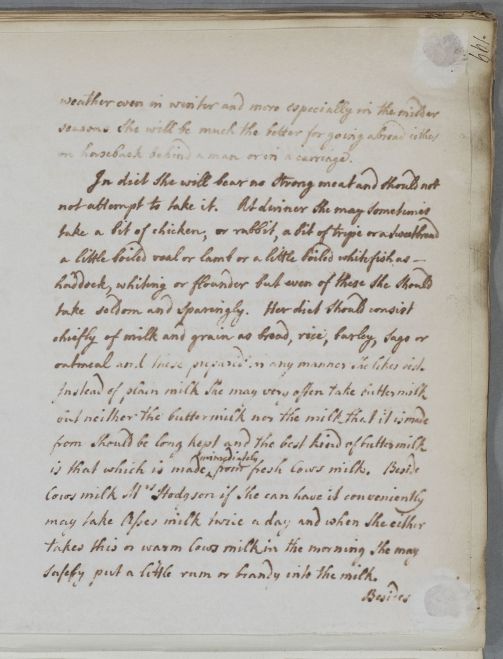 199
weather even in winter and more especially in the milder
seasons She will be much the better for going abroad either
on horseback behind a man or in a carriage.
In diet She will bear no strong meat and should not
not attempt to take it. At dinner She may sometimes
take a bit of chicken, or rabbit, a bit of tripe or a sweetbread
a little boiled veal or lamb or a little boiled whitefish as —
haddock, whiting or flounder but even of these She should
take seldom and sparingly. Her diet should consist
chiefly of milk and grain as bread, rice, barley, Sago or
oatmeal and these prepared in any manner She likes best.
Instead of plain milk She may very often take buttermilk
but neither the buttermilk nor the milk that it is made
from should be long kept and the best kind of buttermilk
is that which is made immediately from fresh Cows milk. Beside
Cows milk Mrs Hodgson if She can have it conveniently
may take Asses milk twice a day and when She either
takes this or warm Cows milk in the morning She may
safely put a little rum or brandy into the milk.
Besides